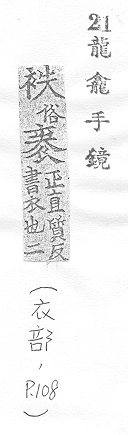 21 龍龕手鏡
袟俗袠正直質反書衣也二
(衣部, P.108)